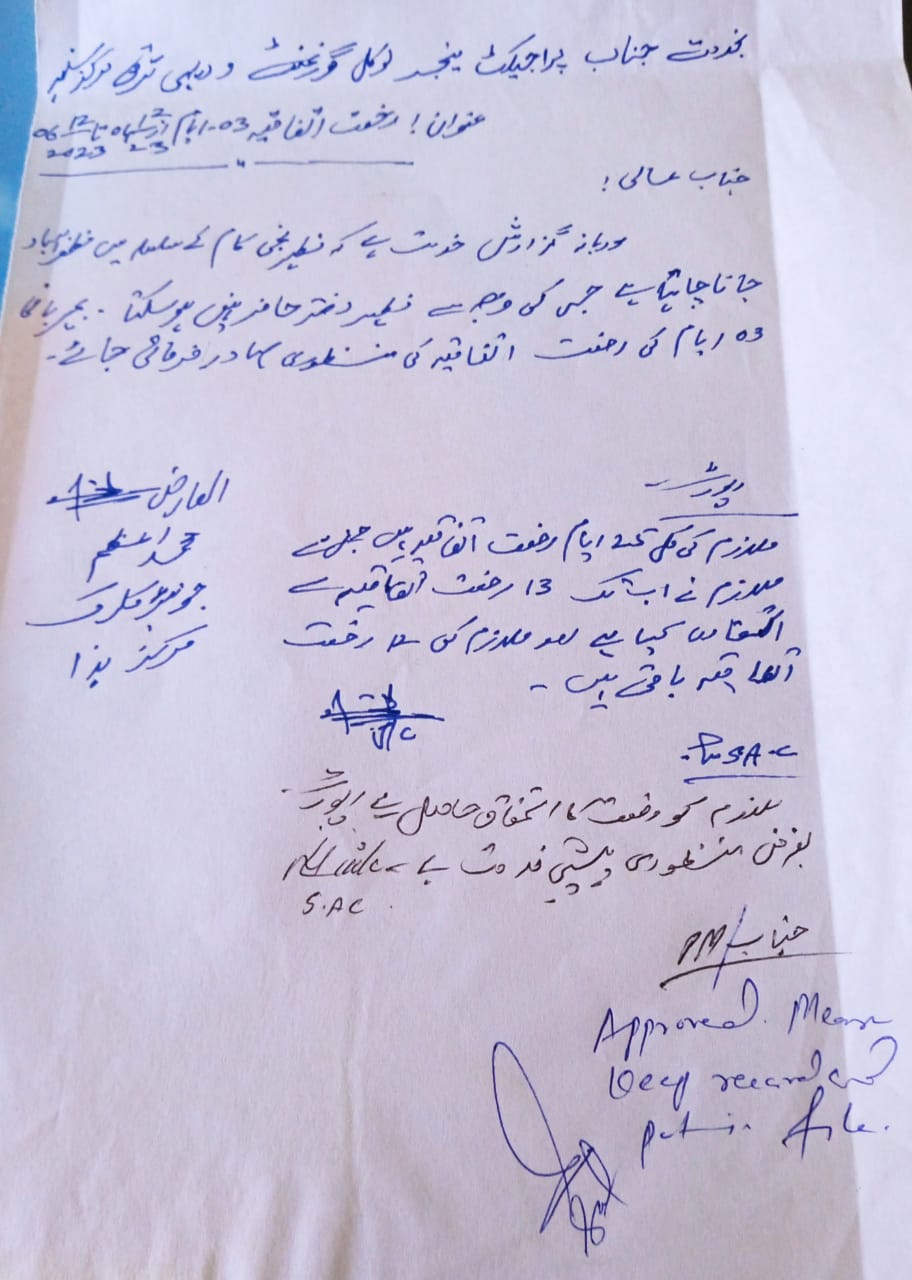 بخدمت جناب پراجیکٹ منیجر لوکل گورنمنٹ و دیہی ترقی مرکز
عنوان! رخصت اتفاقیہ 03۔ایام از
جناب عالی!
مودبانہ گزارش خدمت ہے کہ مظہر نجی کام کے سلسلہ میں مظفرآباد
جانا چاہتا ہے جس کی وجہ سے مظہر دفتر حاضر نہیں ہو سکتا۔
03 ایام کی رخصت اتفاقیہ کی منظوری صادر فرمائی جائے۔
العارض
محمد اعظم
جونیئر کلرک
مرکز ہذا
رپورٹ
ملازم کی کل ایام رخصت اتفاقیہ ہیں جس سے
ملازم نے اب تک 13 رخصت اتفاقیہ سے
استفادہ کیا ہے ملازم کی رخصت
اتفاقیہ باقی ہیں۔
J/C
S.A.C
ملازم کو رخصت کا استحقاق حاصل ہے رپورٹ
بغرض منظوری پیش خدمت ہے
S.AC
جناب PM/
Approved. Mean
Keep record and
put in file.